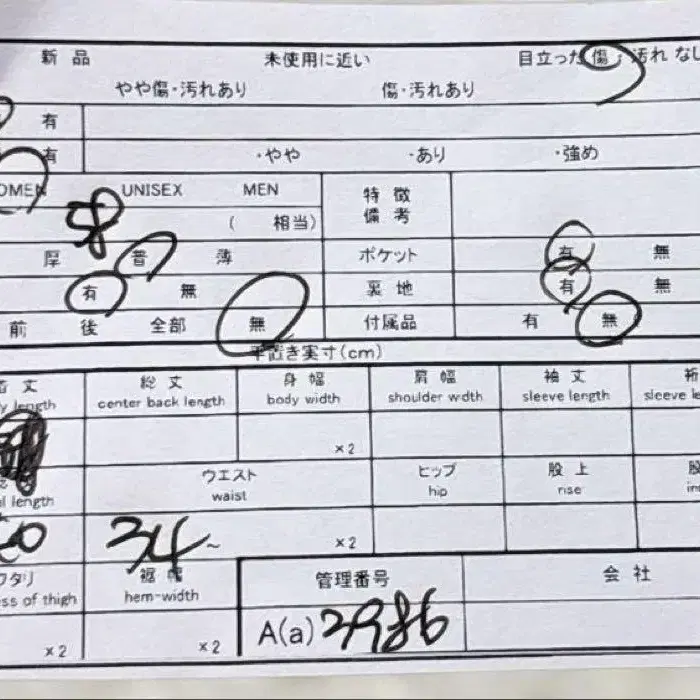 新品 未使用に近い 目立った傷・汚れなし
やや傷・汚れあり 傷・汚れあり
有
有 ・やや ・あり ・強め
OMEN UNISEX MEN 特徴
備考
( 相当)
厚 普 薄 ポケット 有 無
有 無 裏地 有 無
前 後 全部 無 付属品 有 無
平置き実寸(cm)
着丈 総丈 身幅 肩幅 袖丈 裄
y length center back length body width shoulder width sleeve length sleeve le
×2
ウエスト ヒップ 股上 股
l length waist hip rise in
34~ ×2
ワタリ 裾幅 管理番号 会社
ss of thigh hem-width
×2 ×2 A(a) 2986